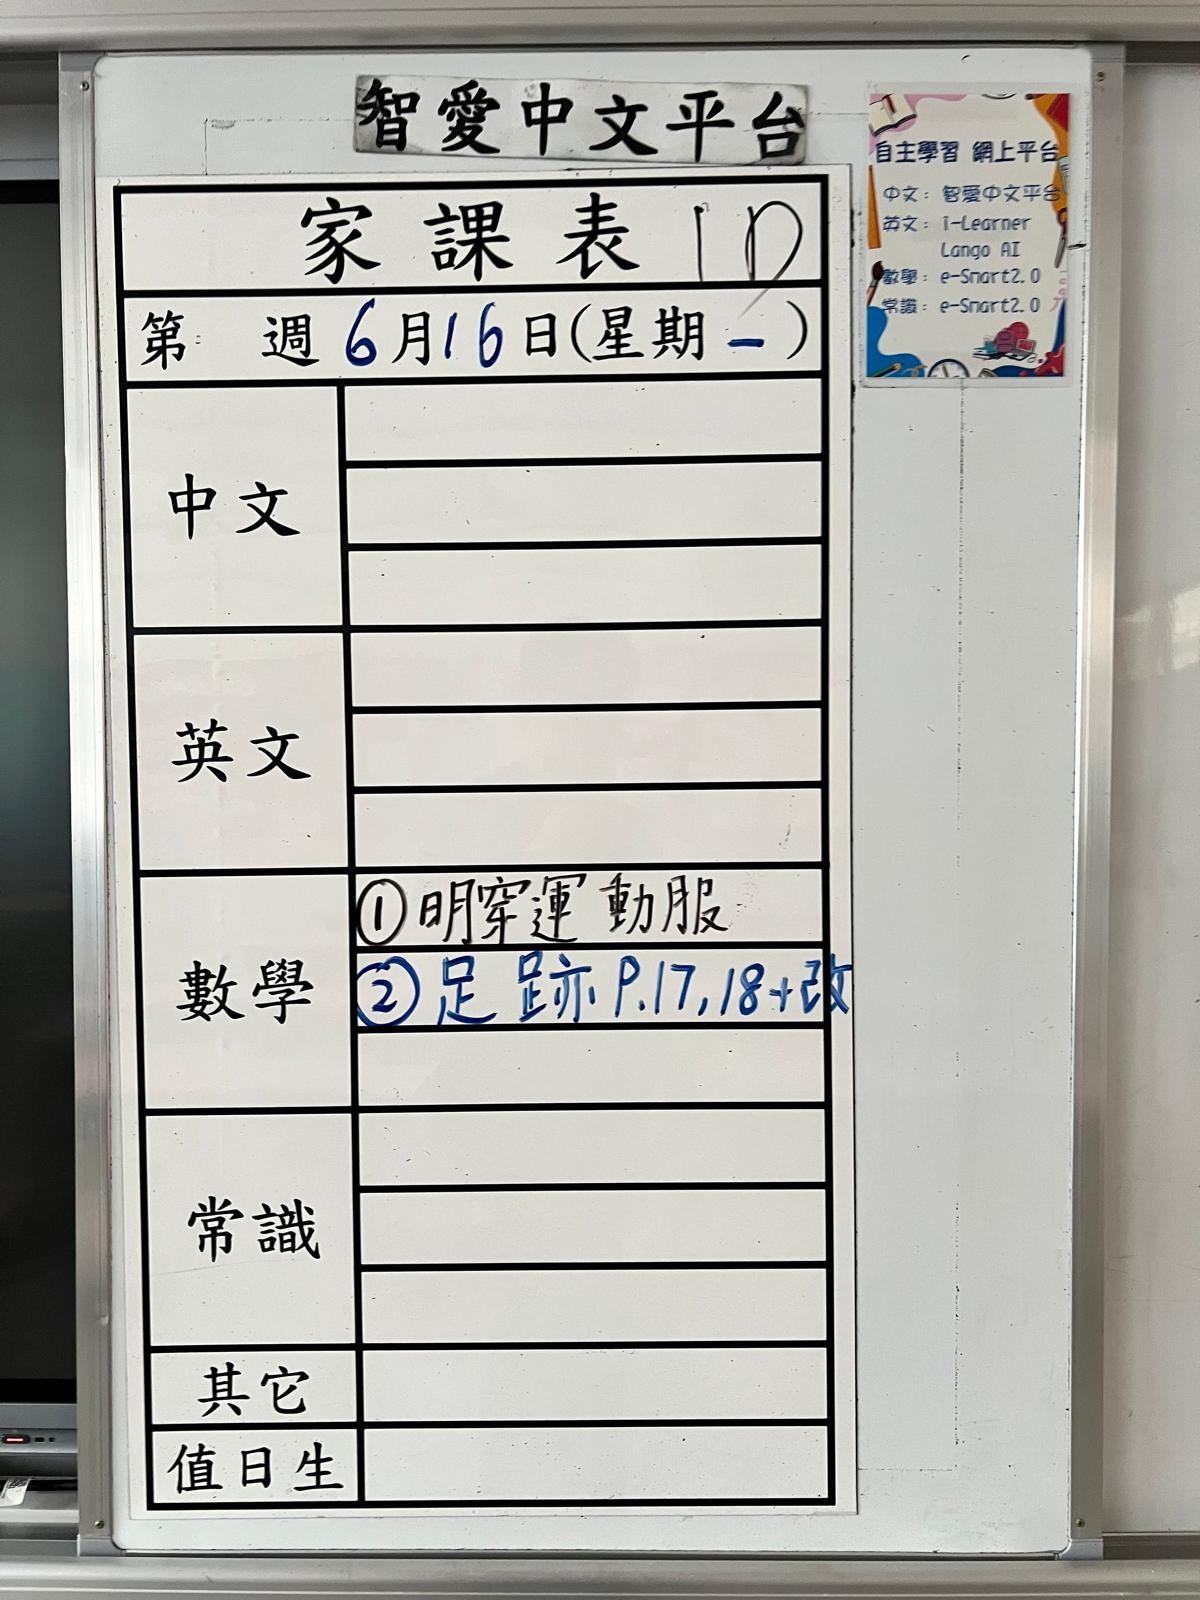 智愛中文平台
家課表 1D
第 週 6月16日(星期一)
中文
英文
數學
①明穿運動服
②足跡P.17,18+改
常識
其它
值日生
自主學習 網上平台
中文: 智愛中文平台
英文: i-Learner
Lango AI
數學: e-Smart2.0
常識: e-Smart2.0